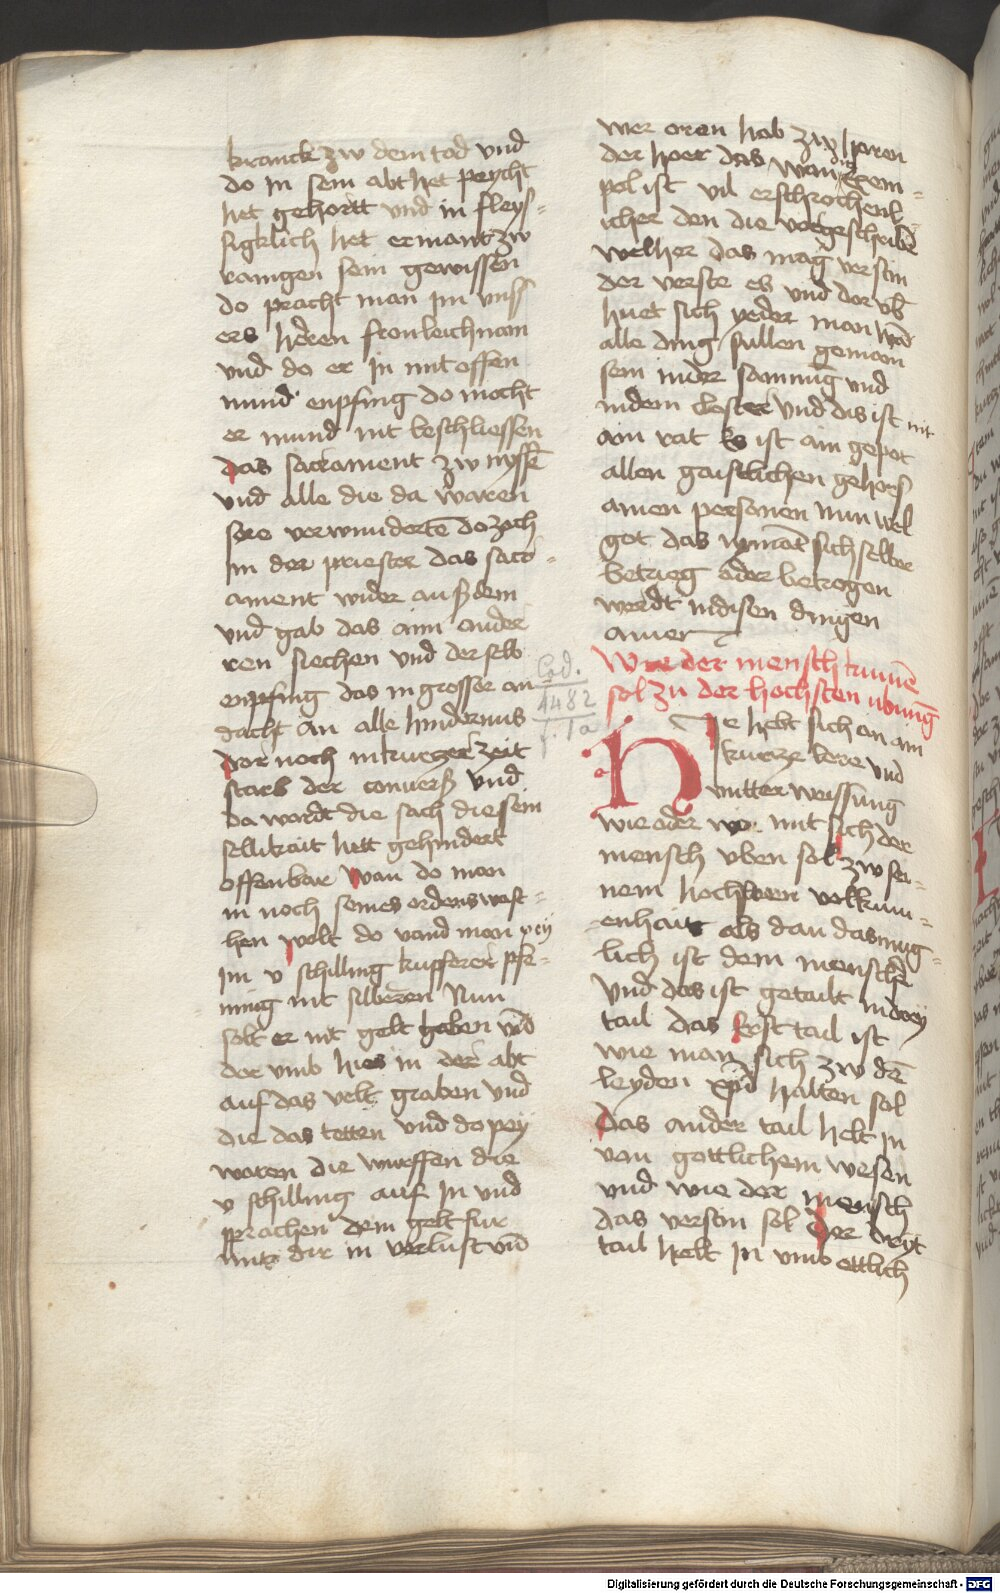 kranck zw dem tod und
do in sein abt het peycht
het gehortt und in fleys-
sigklich het ermant zw
ramgen sein gewissen
do pracht man im unss
ers heren fronleichnam
und do er in mit offen
mund enpfing do mocht
er mund nit beschliessen
das sacrament zw nyssē
und alle die da waren
sere verwundertē do zoch
im der priester das sacr-
ament wider auß dem
und gab das aim ander
ren siechen und der selb
enpfing das in grosser an
dacht an alle hindernus
dor noch in kurczer zeit
starb der converß und
da wardt die sach die sein
sellikait hett gehindert
offenbar wan do man
in noch seines ordens west-
hen wolt do vand man pey
im v schilling kupfferer pfe-
ning nit silberen Nun
solt er nit gelt haben uñ
dor umb hies in der abt
auf das velt graben und
die das tetten und do pey
woren die wurffen die
v schilling auf in und
sprachen dein gelt sur
mit dir in verlust uñ
wer oren hab zw horen
der hoer das wan dig exem-
pel ist vil erschrockenl-
icher den die vorgeschribē
welher das mag verstin
der verste es und dor ub
huet sich yeder man wañ
alle ding sullen gemain
sein in der samnug und
in dem closter und das ist nit
ain rat Es ist ain gepot
allen gaistlichen gehors
amen personen Nun wel
got das nymāt sich selber
betrieg oder betrogen
werdt in disen dingen
amen
Wie der mensch kumē
sol zu der hochsten ubung
Cod.
4482
f. 1a
Hie hebt sich an ain
kurcze lere und
untterweissung
wie oder wo mit sich der
mensch uben sol zw sei-
nem hochsten volkum-
enhait als dan das mug-
lich ist dem menschē
Und das ist getailt in drey
tail das Erst tail ist
wie man sich zw dē
leyden xpi halten sol
das ander tail helt in
von gottlichem wesen
und wie der mensch
das verstin sol der dryt
tail helt in umb ettlich
Digitalisierung gefördert durch die Deutsche Forschungsgemeinschaft - DFG